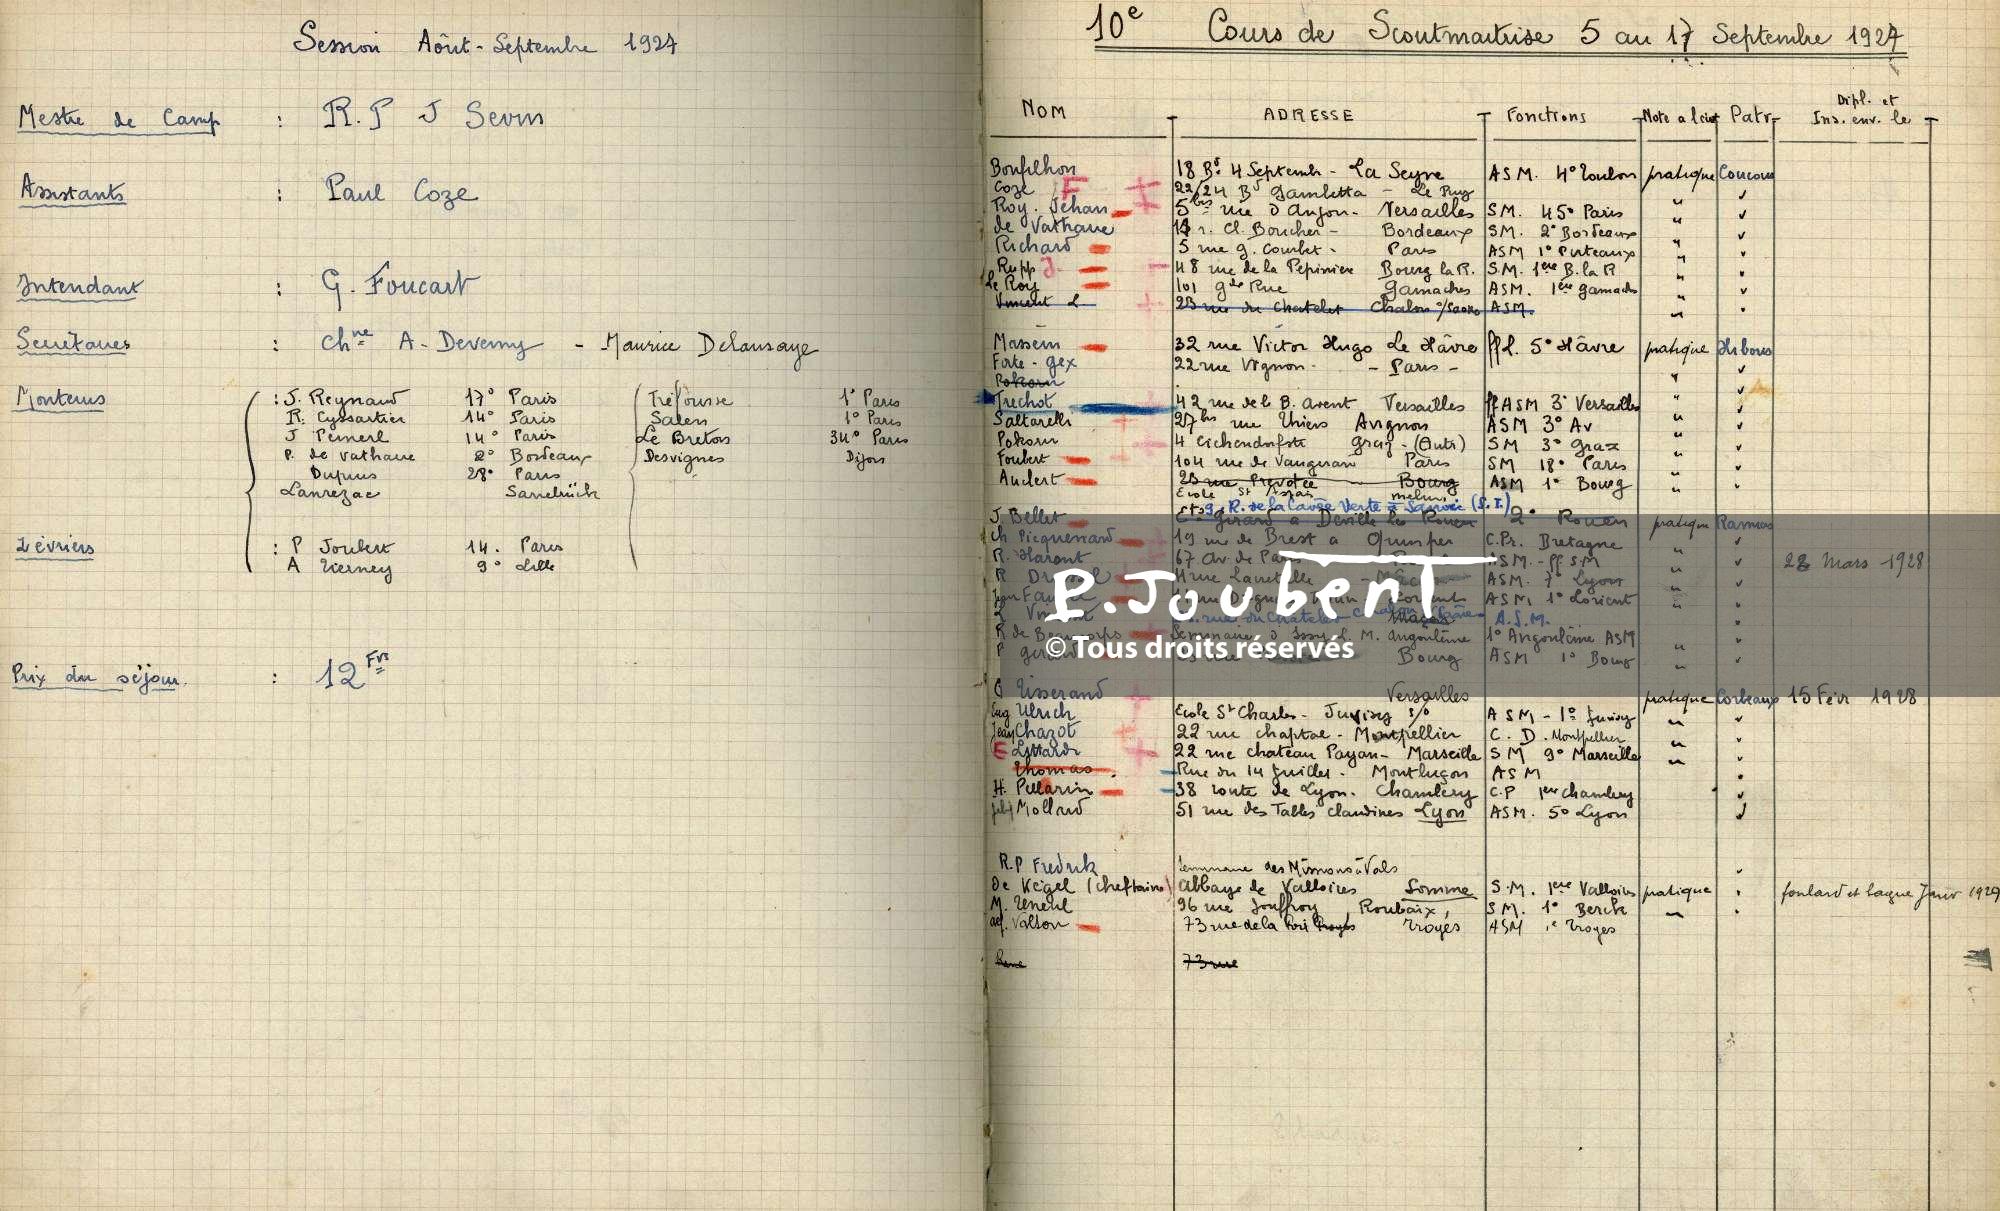 Session Aôut-Septembre 1927
Mestre de Camp : R.P J Sevin
Assistants : Paul Coze
Intendant : G. Foucart
Secrétaires : Chne A. Devemy - Maurice Delansaye
Monteurs : J. Reynaud 17° Paris Tréfousse 1° Paris
R. Cyssartier 14° Paris Salen 1° Paris
J Penerl 14° Paris Le Breton 34° Paris
P. de Vathaire 2° Bordeaux Desvignes Dijon
Dupuis 28° Paris
Lanrezac Sarrebrück
Lévriers : P Joubert 14. Paris
A Tierney 9° Lille
Prix du séjour : 12 Frs
10e Cours de Scoutmaitrise 5 au 17 Septembre 1927
NOM ADRESSE Fonctions Note a loi Patr Dipl. et Ins. env. le
Bonfilhon 18 Bd 4 Septembr - La Seyne ASM. 4° Toulon pratique Coucou
Coze F 22/24 Bd Gambetta - Le Puy
Roy. Jehan 5bis rue d'Anjou - Versailles SM. 45° Paris "
de Vathaire r. Cl. Boucher - Bordeaux SM. 2° Bordeaux "
Richard 5 rue g. Courbet - Paris ASM 1° Puteaux "
Rupp J. 48 rue de la Pépiniere Bourg la R. S.M. 1ère B. la R "
Le Roy 101 gde Rue Gamaches ASM. 1ère Gamachs "
Vincent L 23 rue du Chatelet Chalon s/Saone ASM. "
Massein 32 rue Victor Hugo Le Hâvre ff. 5° Hâvre pratique Hiboux
Forte-gex 22 rue Vignon - Paris -
Pokorn
Trechot 42 rue de l B. avent Versailles ff ASM 3° Versailles "
Saltarelli 27bis rue Thiers Avignon ASM 3° Av "
Pokorn 4 Eichendorfstr Graz - (Autr) SM 3° Graz "
Foubert 104 rue de Vaugirard Paris SM 18° Paris "
Audert 23 rue Prevotée Bourg ASM 1° Bourg "
Ecole St Aspais melun
9. R. de la Cavée Verte à Sanvic (S.I.)
J. Bellet Ets Girard a Deville les Rouen 2° Rouen pratique Ramiers
Ch Picquenard 19 rue de Brest a Quimper C.Pr. Bretagne "
R. Haront 67 av. de Paris ASM.- ff SM " 28 Mars 1928
R 4 rue ASM. 7° Lyon "
Jean Lorient ASM 1° Lorient "
L rue du Chatelet Chalon A.S.M.
R de Seminaire d'Issy l. M. angoulème 1° Angoulême ASM
P Girard Bourg ASM 1° Bourg "
E.JOUBERT
© Tous droits réservés
Tisserand Versailles pratique Corbeaux 15 Fevr 1928
Eug Ulrich Ecole St Charles - Juvisy s/o ASM - 1° Juvisy "
Jean Chazot 22 rue chaptal - Montpellier C. D. Montpellier "
E Littardi 22 rue chateau Payan - Marseille SM 9° Marseille "
Thomas. Rue du 14 Juillet - Montluçon ASM
H. Pellarin 38 route de Lyon. Chambery C.P 1er Chambery
Mollard 51 rue des Tables claudines Lyon ASM. 5° Lyon
R.P Fredrik Seminaire des Missions à Vals
De Kegel (cheftaine) abbaye de Valloires Somme S.M. 1ere Valloires pratique foulard et bague Janv 1929
M. 96 rue Jouffroy, Roubaix, SM. 1° Berck "
Valson 73 rue de la Troyes ASM 1e Troyes
73 rue